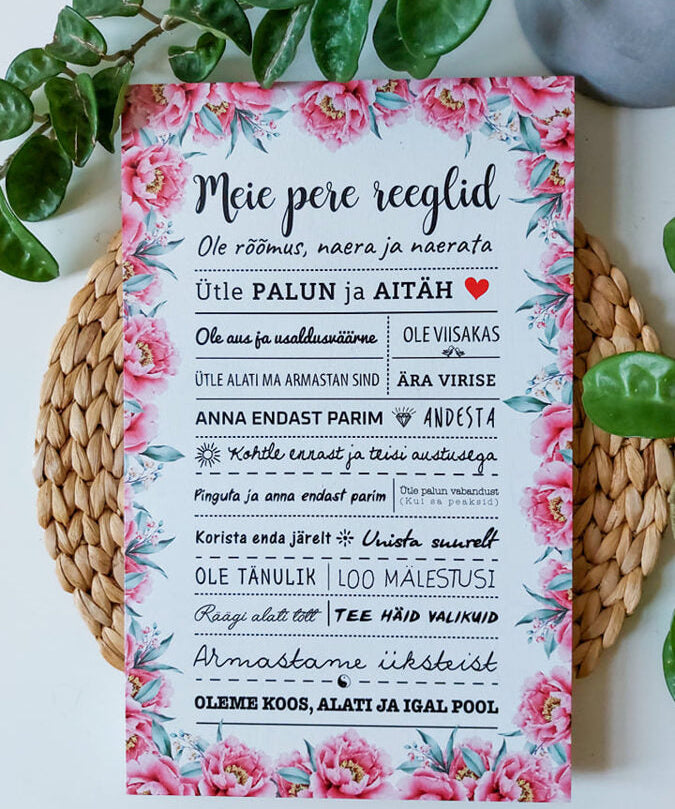 Meie pere reeglid
Ole rõõmus, naera ja naerata
Ütle PALUN ja AITÄH
Ole aus ja usaldusväärne
OLE VIISAKAS
ÜTLE ALATI MA ARMASTAN SIND
ÄRA VIRISE
ANNA ENDAST PARIM ANDESTA
Kohtle ennast ja teisi austusega
Pinguta ja anna endast parim
Ütle palun vabandust
(Kui sa peaksid)
Korista enda järelt Unista suurelt
OLE TÄNULIK LOO MÄLESTUSI
Räägi alati tõtt TEE HÄID VALIKUID
Armastame üksteist
OLEME KOOS, ALATI JA IGAL POOL